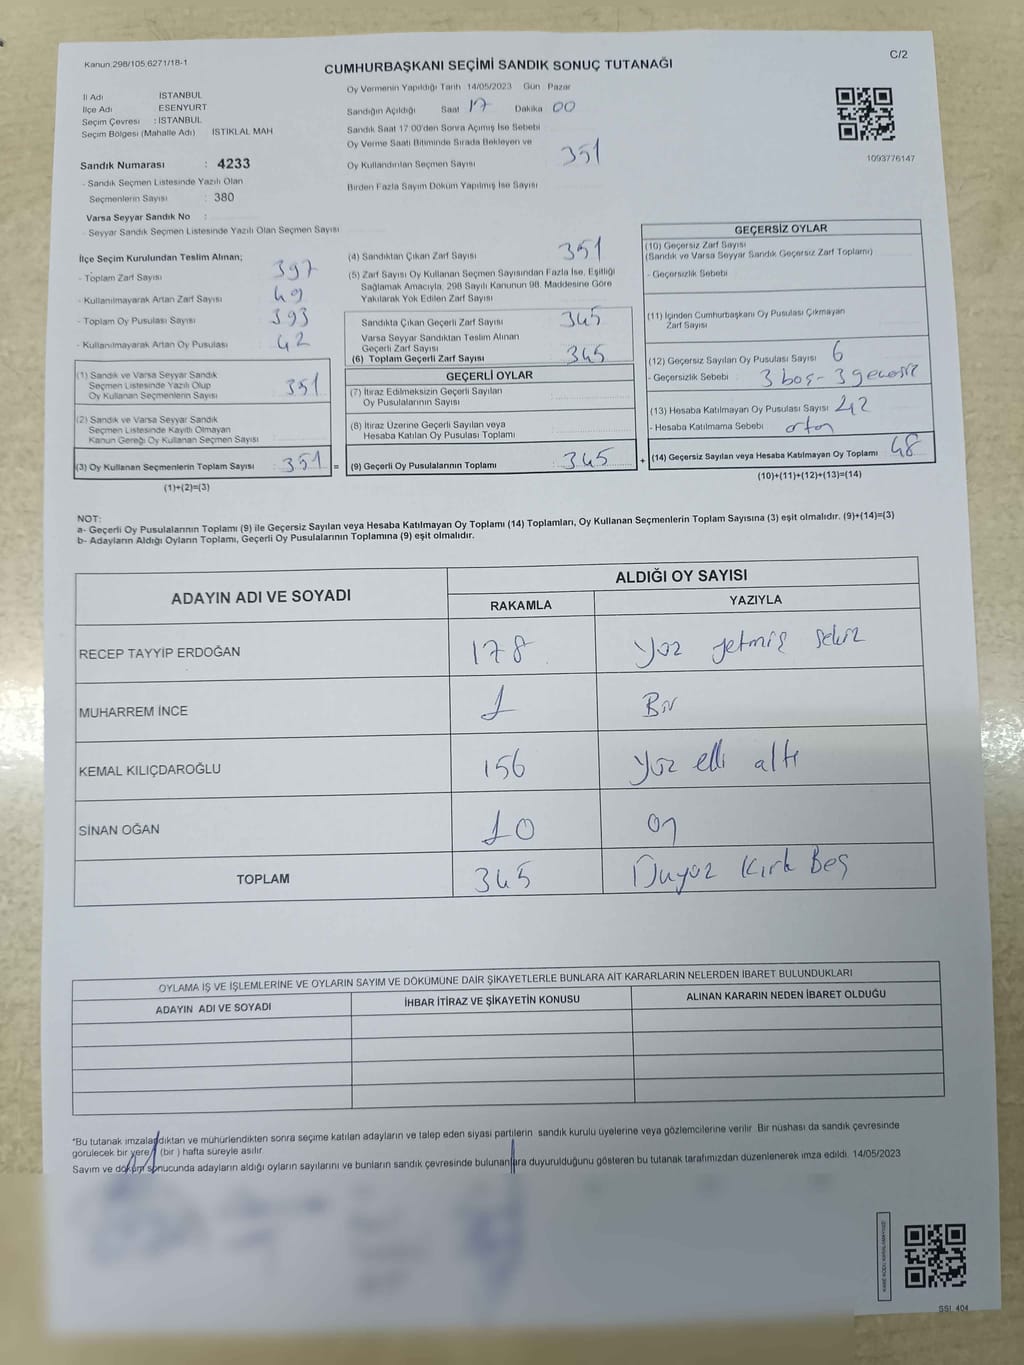 Kanun:298/105,6271/18-1
C/2
CUMHURBAŞKANI SEÇİMİ SANDIK SONUÇ TUTANAĞI
İl Adı İSTANBUL
İlçe Adı ESENYURT
Seçim Çevresi : İSTANBUL
Seçim Bölgesi (Mahalle Adı) İSTİKLAL MAH
Sandık Numarası : 4233
- Sandık Seçmen Listesinde Yazılı Olan
Seçmenlerin Sayısı : 380
Varsa Seyyar Sandık No :
- Seyyar Sandık Seçmen Listesinde Yazılı Olan Seçmen Sayısı
Oy Vermenin Yapıldığı Tarih 14/05/2023 Gün Pazar
Sandığın Açıldığı Saat 17 Dakika 00
Sandık Saat 17:00'den Sonra Açımış İse Sebebi
Oy Verme Saati Bitiminde Sırada Bekleyen ve
Oy Kullandırılan Seçmen Sayısı 351
Birden Fazla Sayım Döküm Yapılmış İse Sayısı
1093776147
İlçe Seçim Kurulundan Teslim Alınan;
- Toplam Zarf Sayısı 397
- Kullanılmayarak Artan Zarf Sayısı 49
- Toplam Oy Pusulası Sayısı 393
- Kullanılmayarak Artan Oy Pusulası 42
(1) Sandık ve Varsa Seyyar Sandık
Seçmen Listesinde Yazılı Olup
Oy Kullanan Seçmenlerin Sayısı 351
(2) Sandık ve Varsa Seyyar Sandık
Seçmen Listesinde Kayıtlı Olmayan
Kanun Gereği Oy Kullanan Seçmen Sayısı
(3) Oy Kullanan Seçmenlerin Toplam Sayısı 351 =
(1)+(2)=(3)
(4) Sandıktan Çıkan Zarf Sayısı 351
(5) Zarf Sayısı Oy Kullanan Seçmen Sayısından Fazla İse, Eşitliği
Sağlamak Amacıyla, 298 Sayılı Kanunun 98. Maddesine Göre
Yakılarak Yok Edilen Zarf Sayısı
Sandıkta Çıkan Geçerli Zarf Sayısı 345
Varsa Seyyar Sandıktan Teslim Alınan
Geçerli Zarf Sayısı
(6) Toplam Geçerli Zarf Sayısı 345
GEÇERLİ OYLAR
(7) İtiraz Edilmeksizin Geçerli Sayılan
Oy Pusulalarının Sayısı
(8) İtiraz Üzerine Geçerli Sayılan veya
Hesaba Katılan Oy Pusulası Toplamı
(9) Geçerli Oy Pusulalarının Toplamı 345 +
GEÇERSİZ OYLAR
(10) Geçersiz Zarf Sayısı
(Sandık ve Varsa Seyyar Sandık Geçersiz Zarf Toplamı)
- Geçersizlik Sebebi
(11) İçinden Cumhurbaşkanı Oy Pusulası Çıkmayan
Zarf Sayısı
(12) Geçersiz Sayılan Oy Pusulası Sayısı 6
- Geçersizlik Sebebi 3 boş - 3 geçersiz
(13) Hesaba Katılmayan Oy Pusulası Sayısı 42
- Hesaba Katılmama Sebebi artan
(14) Geçersiz Sayılan veya Hesaba Katılmayan Oy Toplamı 48
(10)+(11)+(12)+(13)=(14)
NOT:
a- Geçerli Oy Pusulalarının Toplamı (9) ile Geçersiz Sayılan veya Hesaba Katılmayan Oy Toplamı (14) Toplamları, Oy Kullanan Seçmenlerin Toplam Sayısına (3) eşit olmalıdır. (9)+(14)=(3)
b- Adayların Aldığı Oyların Toplamı, Geçerli Oy Pusulalarının Toplamına (9) eşit olmalıdır.
ADAYIN ADI VE SOYADI ALDIĞI OY SAYISI
RAKAMLA YAZIYLA
RECEP TAYYİP ERDOĞAN 178 Yüz yetmiş sekiz
MUHARREM İNCE 1 Bir
KEMAL KILIÇDAROĞLU 156 Yüz elli altı
SİNAN OĞAN 10 On
TOPLAM 345 Kırk Beş
OYLAMA İŞ VE İŞLEMLERİNE VE OYLARIN SAYIM VE DÖKÜMÜNE DAİR ŞİKAYETLERLE BUNLARA AİT KARARLARIN NELERDEN İBARET BULUNDUKLARI
ADAYIN ADI VE SOYADI İHBAR İTİRAZ VE ŞİKAYETİN KONUSU ALINAN KARARIN NEDEN İBARET OLDUĞU
*Bu tutanak imzalandıktan ve mühürlendikten sonra seçime katılan adayların ve talep eden siyasi partilerin sandık kurulu üyelerine veya gözlemcilerine verilir. Bir nüshası da sandık çevresinde
görülecek bir yere (bir) hafta süreyle asılır.
Sayım ve döküm sonucunda adayların aldığı oyların sayılarını ve bunların sandık çevresinde bulunanlara duyurulduğunu gösteren bu tutanak tarafımızdan düzenlenerek imza edildi. 14/05/2023
SSI: 404